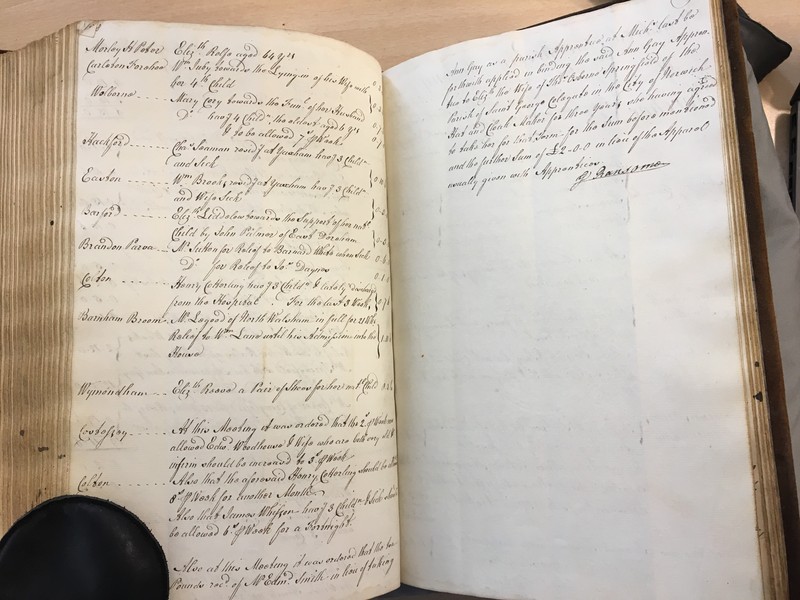 Morley St Peter Eliz.th Rolfe aged 64 y.rs
Carleton Forehoe W.m Juby towards the Lying in of his Wife with
her 4.th Child
Welborne Mary Cory towards the Fun.l of her Husband
D.o hav.g 4 Child.n the oldest aged 6 y.rs
& to be allowed 7.s p Week
Hackford Cha.s Seaman resid.g at Yaxham hav.g 3 Child.n
and Sick
Easton W.m Brook resid.g at Yaxham hav.g 3 Child.n
and Wife Sick
Barford Eliz.th Liddelow towards the Support of her nat.l
Child by John Pidmor of East Dereham
Brandon Parva M.r Sutton for Relief to Barnard White when Sick
D.o for Relief to Ja.s Daynes
Colton Henry Cotterling hav.g 3 Child.n & lately discharged
from the Hospital For the last 3 Weeks
Barnham Broom M.r Laygood of North Walsham in full for 21 Weeks
Relief to W.m Lane until his Admission into the
House
Wymondham Eliz.th Reeve a Pair of Shoes for her nat.l Child
Costessey At this Meeting it was ordered that the 2.s p Week now
allowed Edw.d Woodhouse & Wife who are both very old &
infirm should be increased to 3.s p Week
Colton Also that the aforesaid Henry Cotterling should be allowed
8.s p Week for another Month
Also that James Whipson hav.g 3 Child.n & Sick should
be allowed 6.s p Week for a Fortnight
Also at this Meeting it was ordered that the two
Pounds rec.d of M.r Edm.d Smith in lieu of taking
Ann Gay as a parish Apprentice at Mich.s last be
forthwith applied in binding the said Ann Gay Appren-
tice to Eliz.th the Wife of Tho.s Osborne Springfield of the
Parish of Saint George Colegate in the City of Norwich
Hat and Cloak Maker for three Years she having agreed
to take her for that Term for the Sum before mentioned
and the further Sum of £2-0-0 in lieu of the Apparel
usually given with Apprentices
Ransome